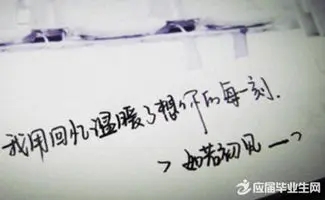 我用回忆温暖了想你的每一刻.
> 如若初见 一 >
应届毕业生网